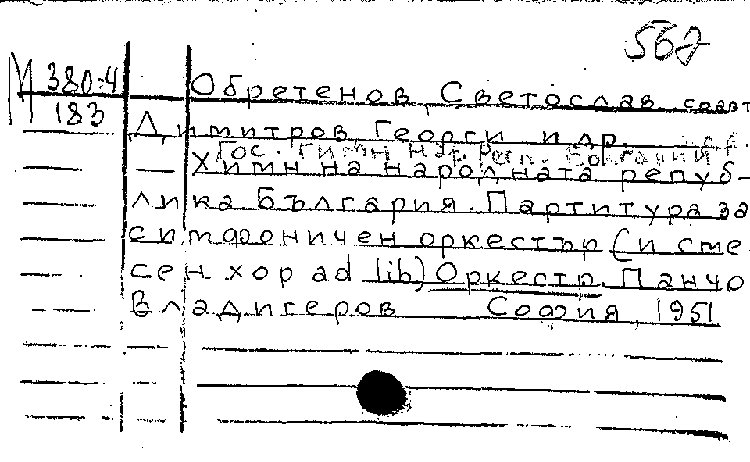 562
М 380-4
183
Обретенов, Светослав, соавт
Димитров, Георги и др.
Гос. гимн Нар. Респ. Болгарии
Химн на народната репуб-
лика България. Партитура за
симфоничен оркестър (и сме-
сен хор ad lib) Оркестр. Панчо
Владигеров София, 1951